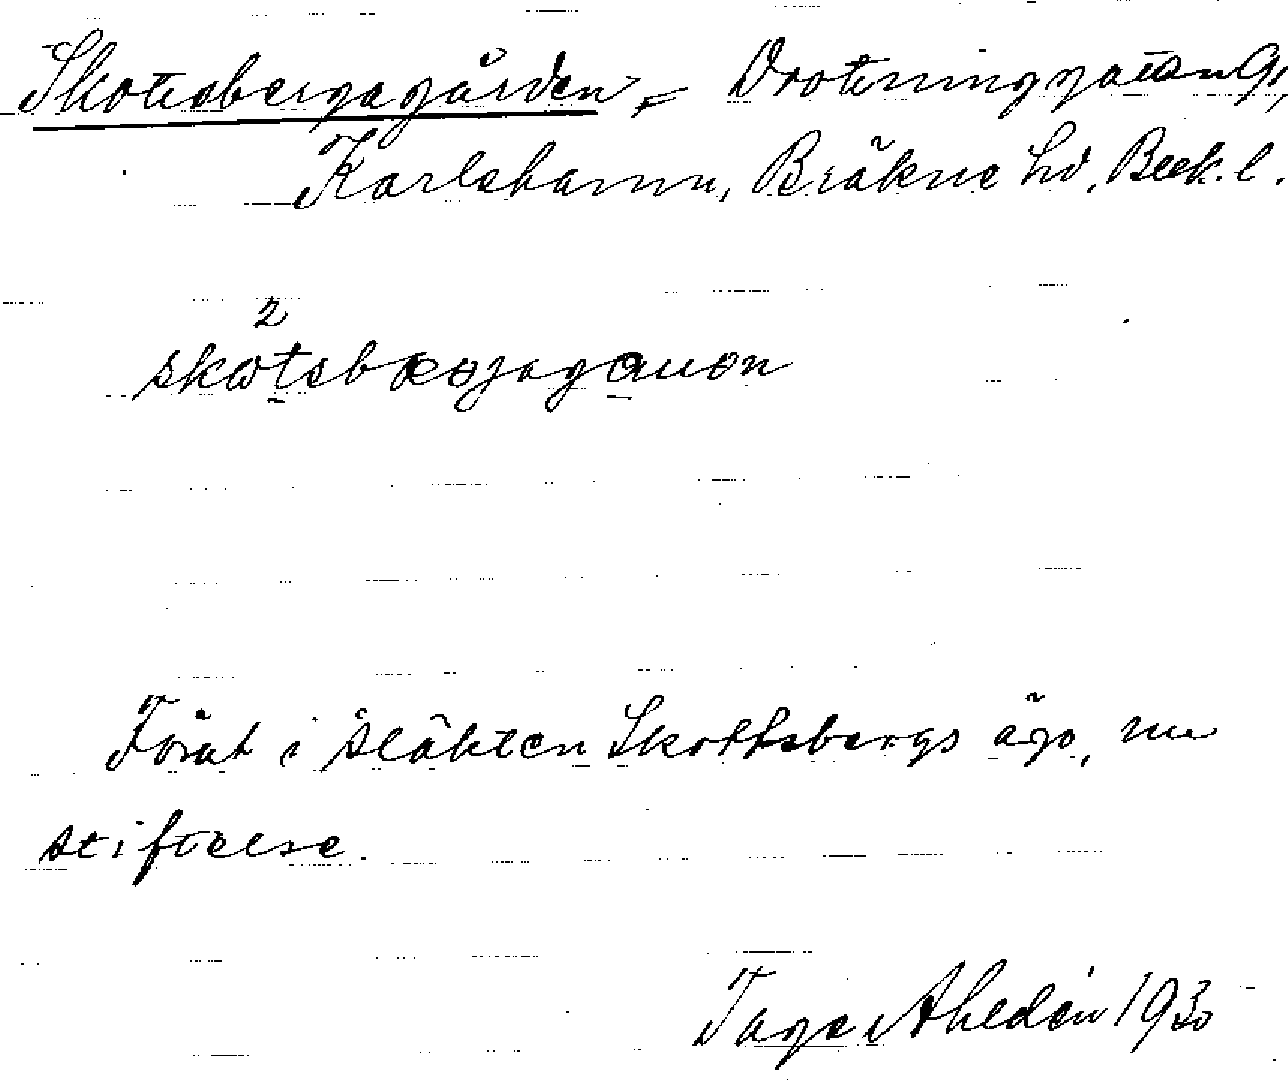 Skottsbergagården, Drottninggatan 91,
Karlshamn, Bräkne hd, Blek. l.
2
skωtsbæɹjagauən
Förut i släkten Skottsbergs ägo, nu
stiftelse.
Tage Ahldén 1930